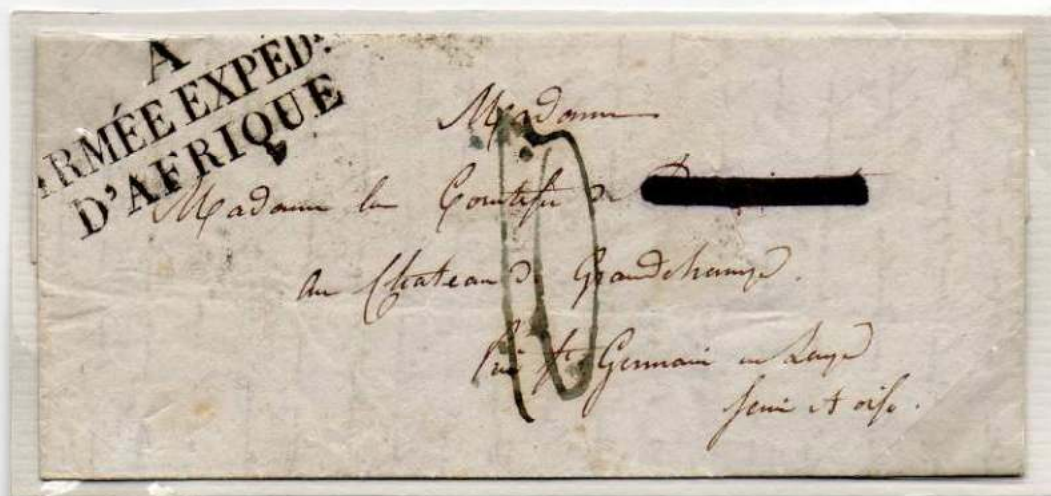 A
ARMÉE EXPÉD.
D'AFRIQUE
Madame
Madame la Comtesse de
au Chateau de Grandchamp.
St. Germain en Laye
Seine et oise.